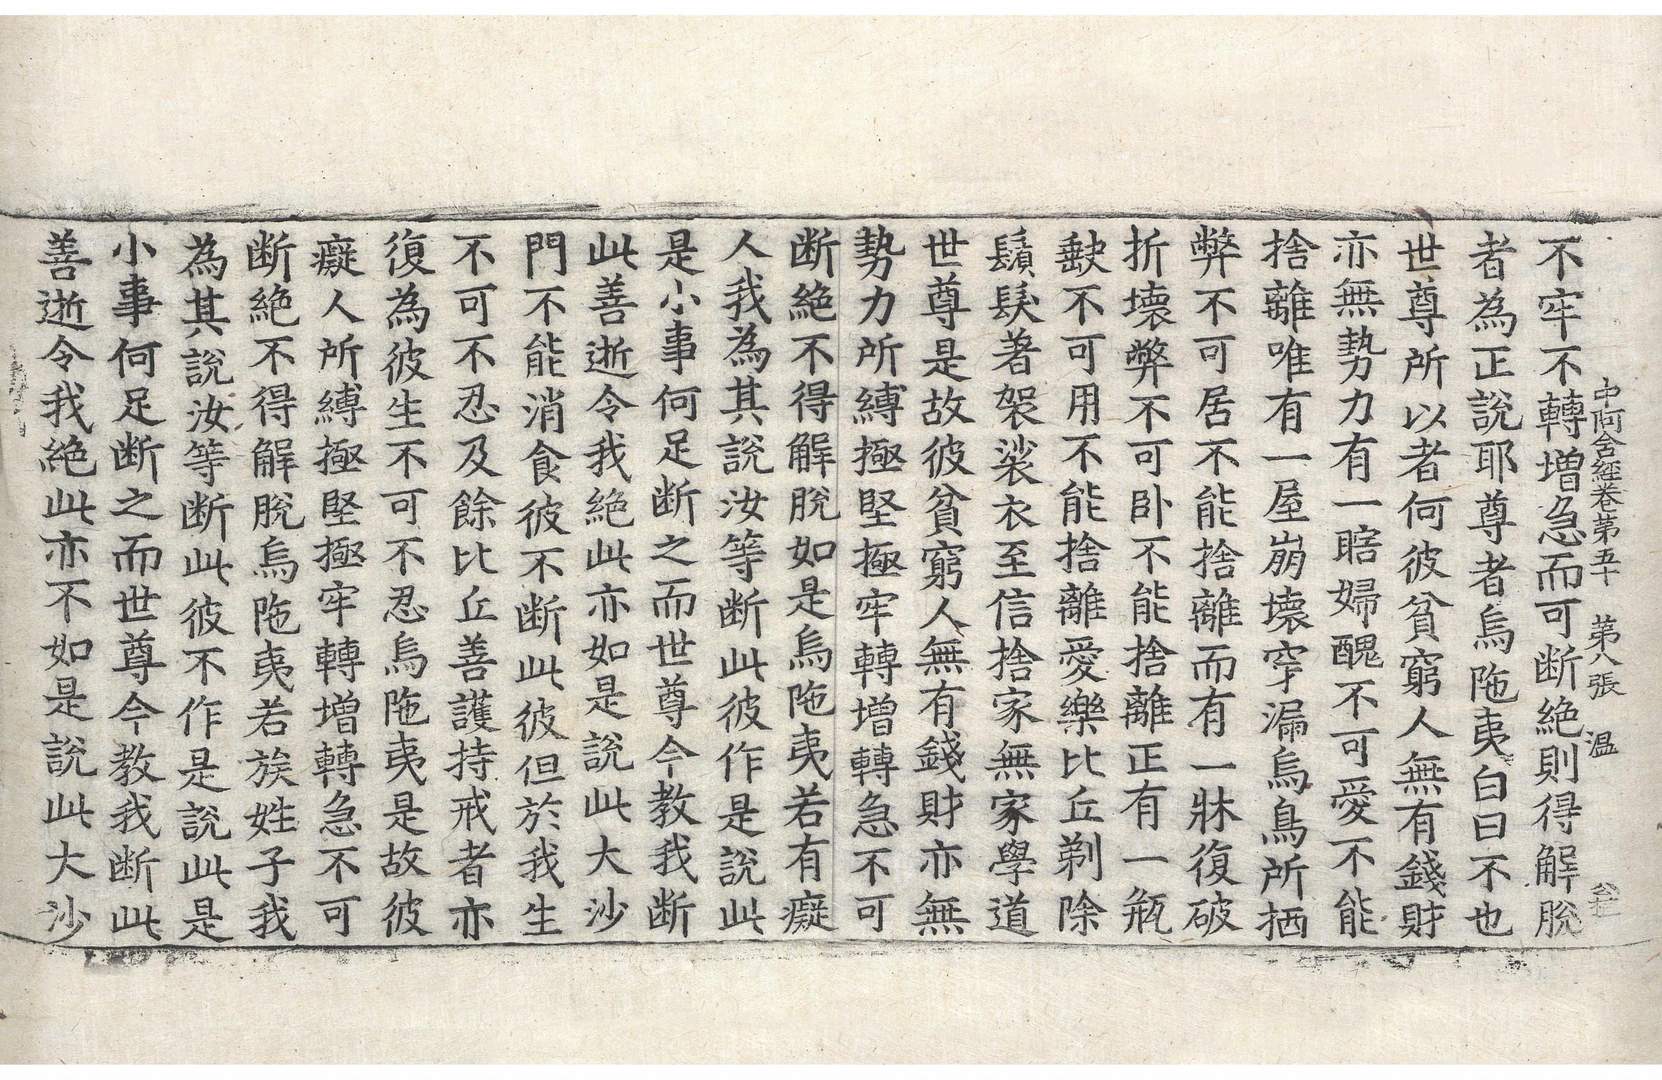 中阿含經卷第五十 第八張 温
不牢不轉增急而可断絶則得解脫
者為正說耶尊者烏陁夷白曰不也
世尊所以者何彼貧窮人無有錢財
亦無勢力有一瞎婦醜不可愛不能
捨離唯有一屋崩壊穿漏烏鳥所栖
弊不可居不能捨離而有一牀復破
折壊弊不可卧不能捨離正有一瓶
缺不可用不能捨離愛樂比丘剃除
鬚髮著袈裟衣至信捨家無家學道
世尊是故彼貧窮人無有錢財亦無
勢力所縛極堅極牢轉增轉急不可
断絶不得解脫如是烏陁夷若有癡
人我為其說汝等断此彼作是說此
是小事何足断之而世尊今教我断
此善逝令我絶此亦如是說此大沙
門不能消食彼不断此彼但於我生
不可不忍及餘比丘善護持戒者亦
復為彼生不可不忍烏陁夷是故彼
癡人所縛極堅極牢轉增轉急不可
断絶不得解脫烏陁夷若族姓子我
為其說汝等断此彼不作是說此是
小事何足断之而世尊今教我断此
善逝令我絶此亦不如是說此大沙